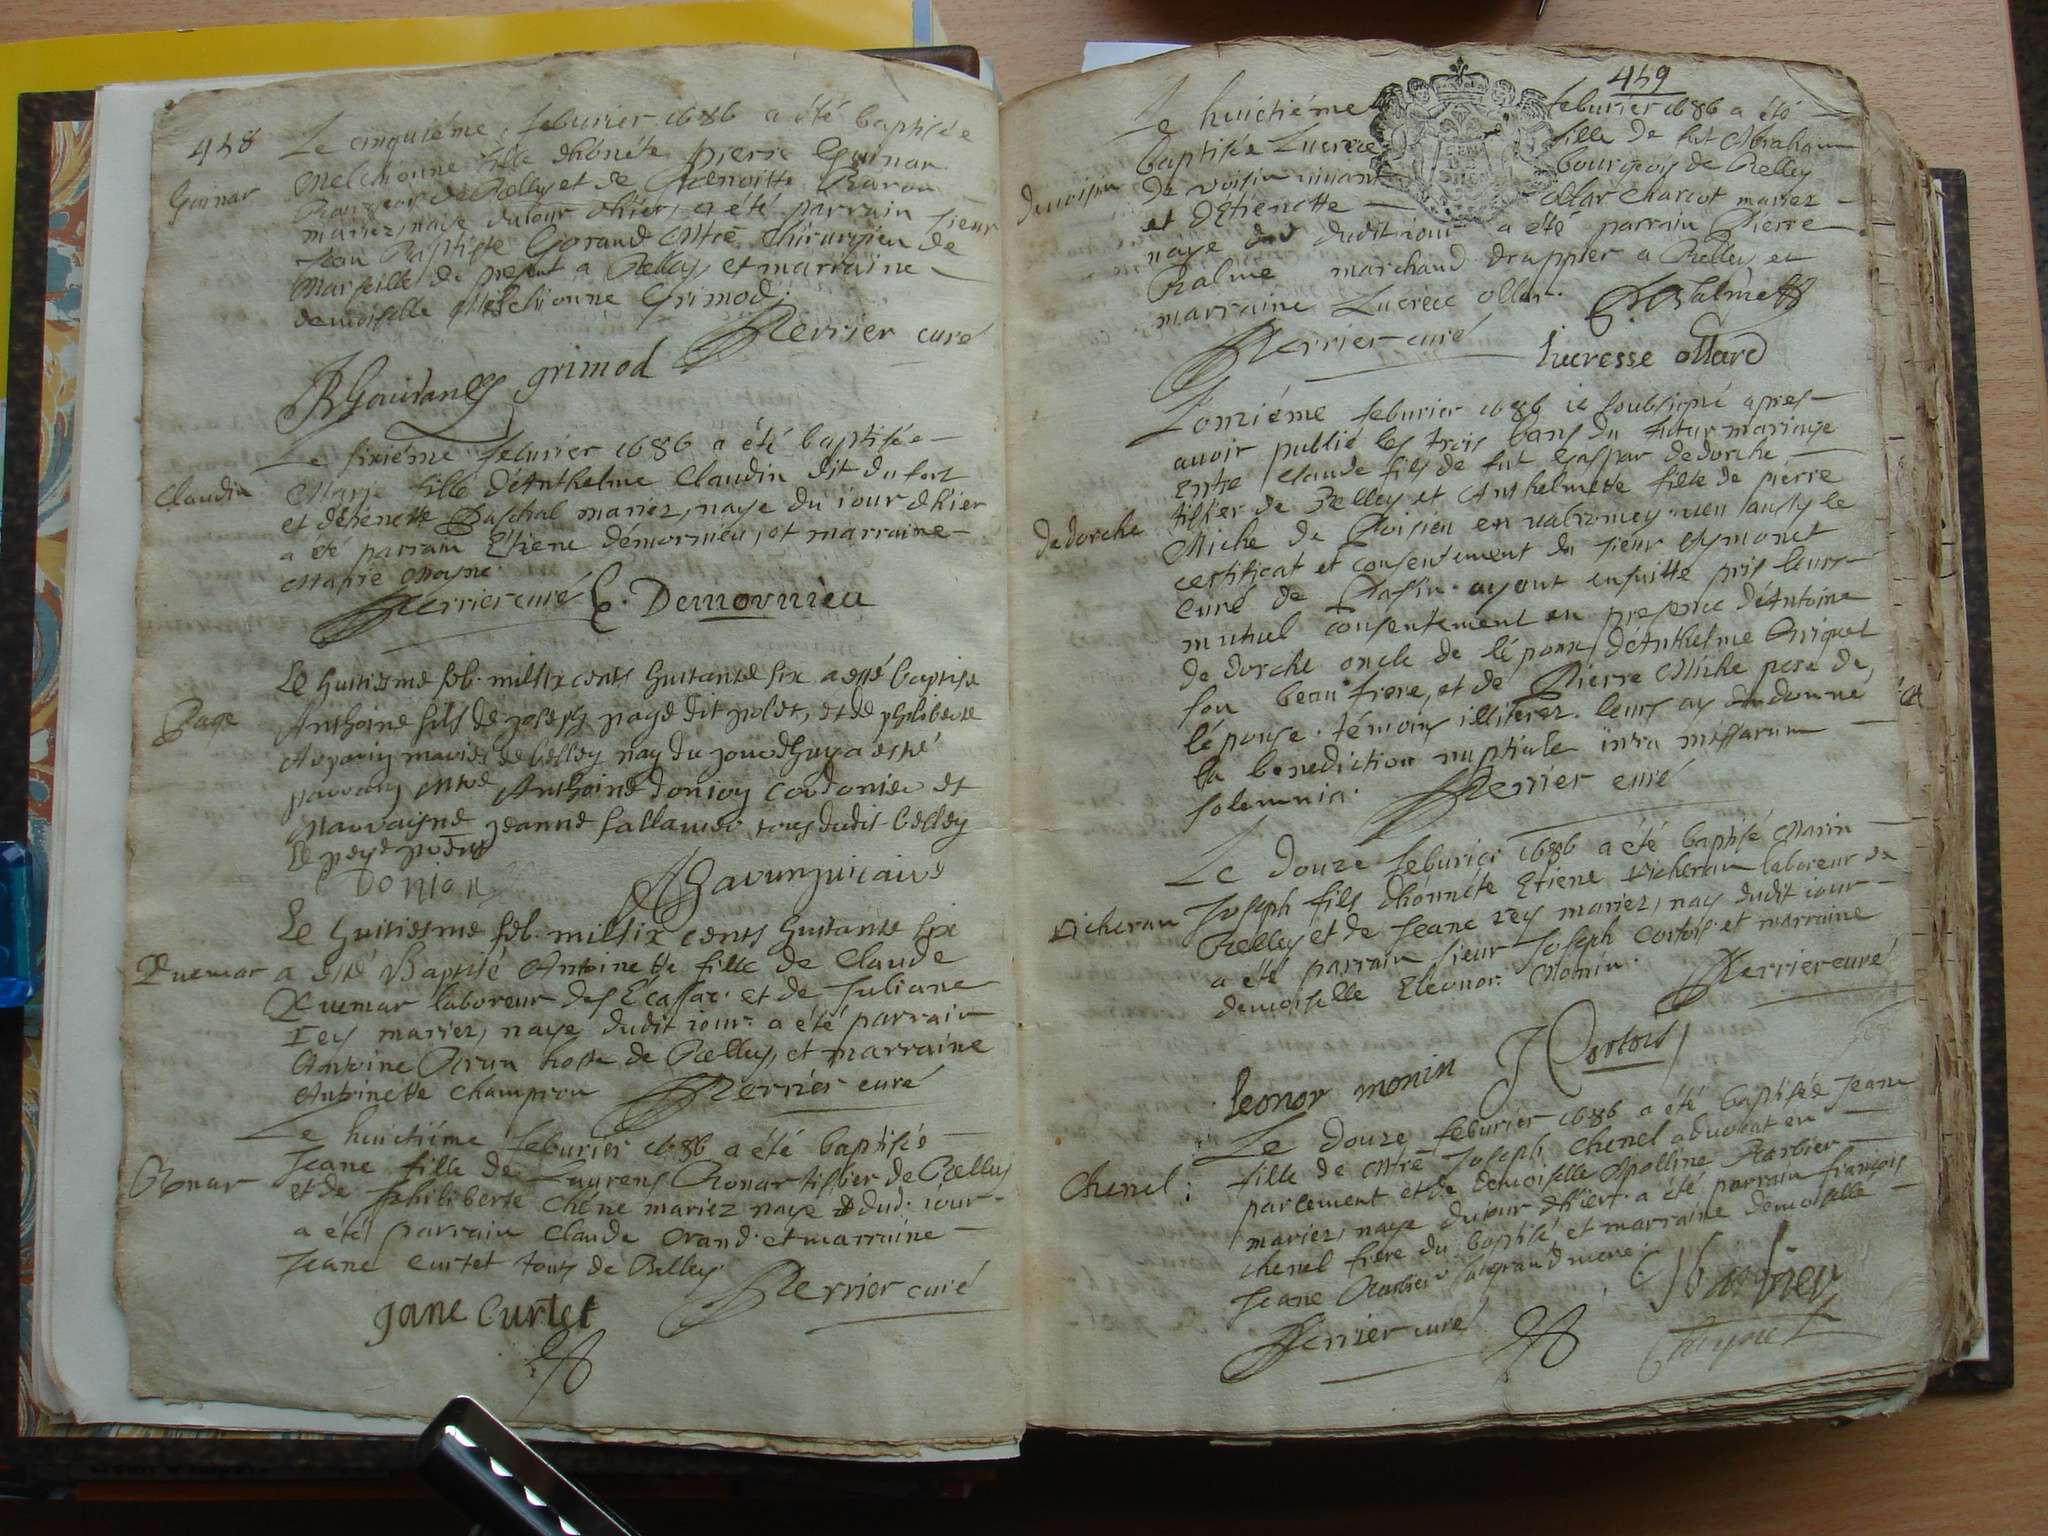 458
Le cinquiéme feburier 1686 a été baptisée
Guinar
Melchionne fille dhonéte pierre Guinar
Bourgeois de Belley et de Benoitte Baron
mariez, naye du iour dhier, a été parrain sieur
Jean Baptiste Gorand Mtre Chirurgien de
Marseille de present a Belley et marraine
demoiselle Melchionne Grimod.
Perrier curé
grimod
Le sixiéme feburier 1686 a été baptisée
Claudin
Marie fille d'Anthelme Claudin dit du fort
et d'etienette Paschal mariez, naye du iour dhier
a été parrain Etiene démornieu, et marraine
Marie Moyne
Perrier curé E. Demornieu
Le huitiesme feb. mil six cents huitante six a esté baptise
Page
Anthoine fils de Joseph page dit polet, et de philiberte
mariés de belley nay du jourdhuy a esté
parrain Mtre Anthoine donjon cordonier et
Marraigne Jeanne Sallanier tous dudit belley
Donjon
Le huitiesme feb. mil six cents huitante six
Duemar
a esté Baptisé Antoinette fille de Claude
Duemar laboreur des Ecassaz et de Juliane
Iey mariez, naye dudit iour. a été parrain
Antoine Brun hoste de Belley, et marraine
Antoinette Champion Perrier curé
Le huictiéme feburier 1686 a été baptisée
Bonar
Jeane fille de Laurens Bonar tissier de Belley
et de philiberte Chéne mariez naye dud. iour
a été parrain Claude Brand. et marraine
Jeane Curtet tous de Belley
Perrier curé
Jane Curtet
459
Le huictiéme feburier 1686 a été
baptisée Lucrece fille de fut Abraham
devoisin
de voisin vivant bourgeois de Belley
et d'Etienette Ollar Charcot mariez
naye dudit iour a été parrain Pierre
Balme marchand drappier a Belley et
marraine Lucrece Ollar. P. Balme
Perrier curé
Lucresse ollard
L'onziéme feburier 1686 ie soubsigné apres
auoir publié les trois bans du futur mariage
entre Claude fils de fut Gaspar dedorche
dedorche
tissier de Belley et Anthelmette fille de pierre
Miche de Poisieu en valromey. veu aussy le
certificat et consentement du sieur Aymonet
curé de Passin. ayant ensuitte pris leurs
mutuel consentement en presence d'Antoine
de dorche oncle de l'époux, d'Anthelme Briquet
son beau frere, et de Pierre Miche pere de
l'épouse. témoins illiterez. leurs ay donné
la benediction nuptiale intra missarum
solemnia. Perrier curé
Le douze feburier 1686 a été baptisé Marin
vicheran
Joseph fils dhonnéte Etiene vicheran laboreur de
Belley et de Jeane rey mariez, nay dudit iour
a été parrain sieur Joseph Cortois et marraine
demoiselle Eleonor Monin.
Perrier curé
leonor monin J Cortois
Le douze feburier 1686 a été baptisée Jeane
Chenel
fille de Mtre Joseph Chenel aduocat en
parlement et de demoiselle Apolline Barbier
mariez, naye du iour dhier. a été parrain françois
chenel frere du baptisé, et marraine demoiselle
Jeane Barbier sa grand mere.
Perrier curé